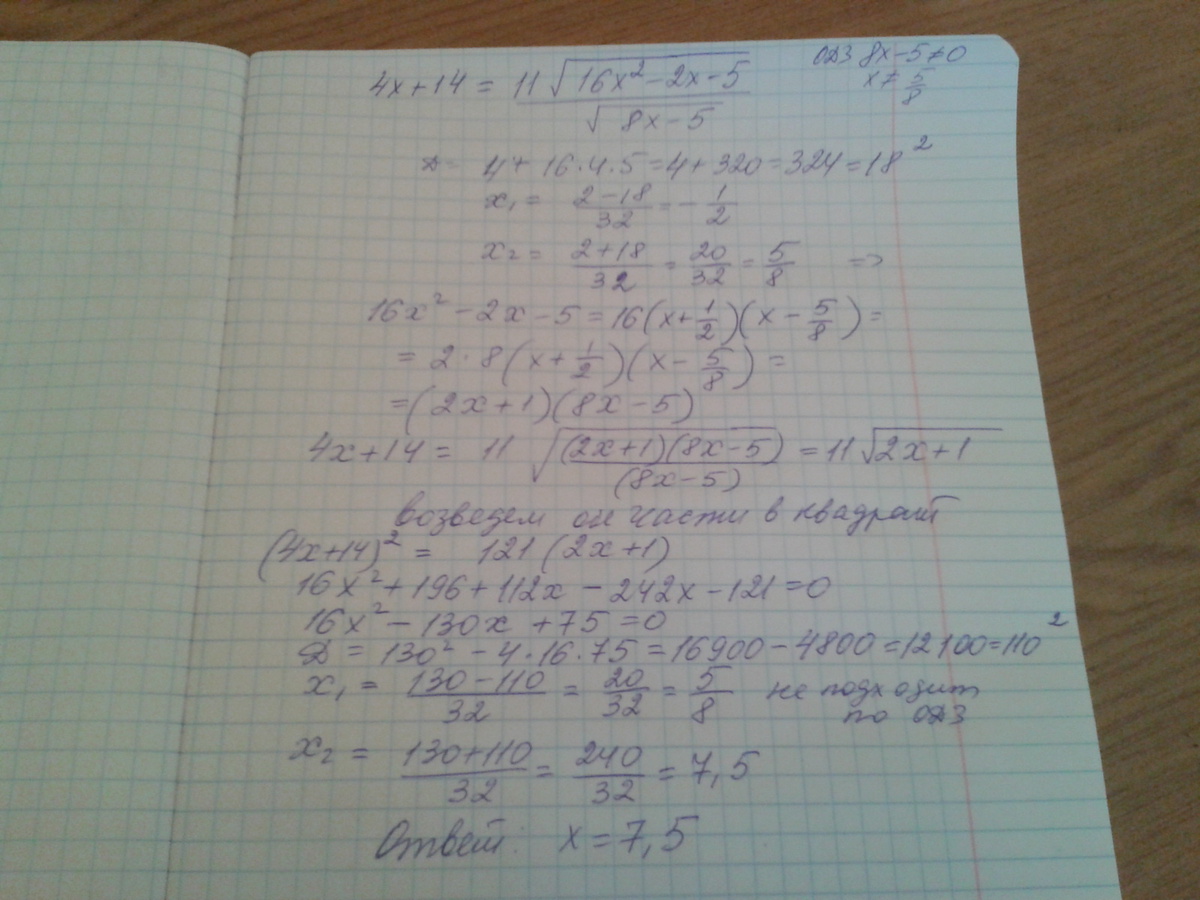 4x+14 = 11√(16x²-2x-5) / √(8x-5)
ОДЗ 8x-5≠0
x≠5/8
D= 4+16·4·5=4+320=324=18²
x₁= (2-18)/32=-1/2
x₂= (2+18)/32=20/32=5/8 =>
16x²-2x-5=16(x+1/2)(x-5/8)=
=2·8(x+1/2)(x-5/8)=
=(2x+1)(8x-5)
4x+14= 11 √((2x+1)(8x-5)/(8x-5))=11√(2x+1)
возведем части в квадрат
(4x+14)²= 121(2x+1)
16x²+196+112x-242x-121=0
16x²-130x+75=0
D=130²-4·16·75=16900-4800=12100=110²
x₁= (130-110)/32=20/32=5/8 не подходит
по ОДЗ
x₂= (130+110)/32=240/32=7,5
Ответ: x=7,5